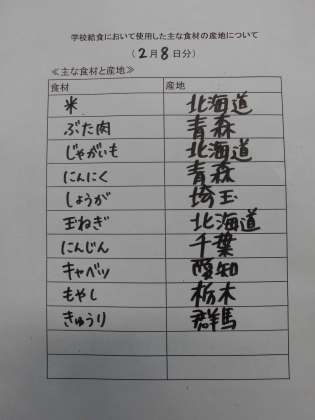 学校給食において使用した主な食材の産地について
(2月8日分)
≪主な食材と産地≫
食材 産地
米 北海道
ぶた肉 青森
じゃがいも 北海道
にんにく 青森
しょうが 埼玉
玉ねぎ 北海道
にんじん 千葉
キャベツ 愛知
もやし 栃木
きゅうり 群馬